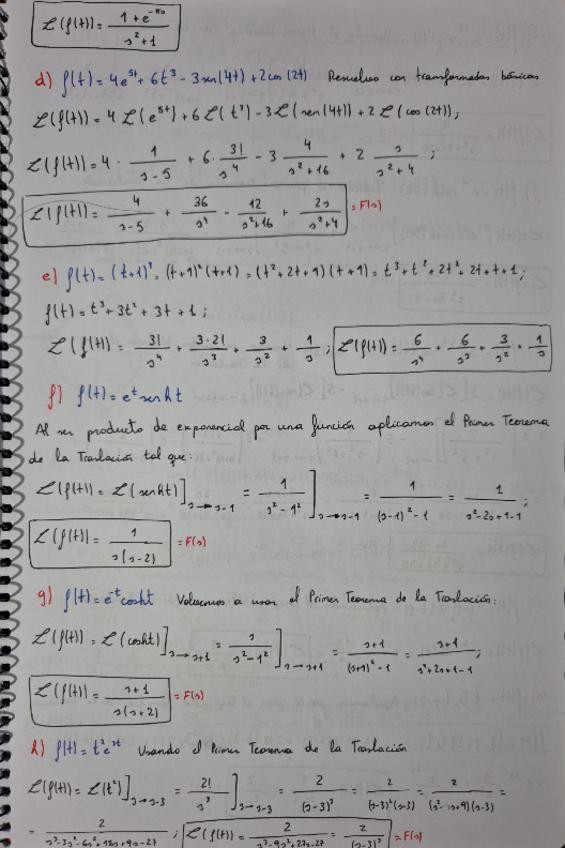 ℒ(f(t)) = (1 + e^(-πs))/(s²+1)
d) f(t) = 4e^(5t) + 6t³ - 3sen(4t) + 2cos(2t) Resuelvo con transformadas básicas
ℒ(f(t)) = 4 ℒ(e^(5t)) + 6 ℒ(t³) - 3 ℒ(sen(4t)) + 2 ℒ(cos(2t));
ℒ(f(t)) = 4 · 1/(s-5) + 6 · 3!/s⁴ - 3 4/(s²+16) + 2 s/(s²+4);
ℒ(f(t)) = 4/(s-5) + 36/s⁴ - 12/(s²+16) + 2s/(s²+4) = F(s)
e) f(t) = (t+1)³ = (t+1)²(t+1) = (t²+2t+1)(t+1) = t³+t²+2t²+2t+t+1;
f(t) = t³ + 3t² + 3t + 1;
ℒ(f(t)) = 3!/s⁴ + 3·2!/s³ + 3/s² + 1/s; ℒ(f(t)) = 6/s⁴ + 6/s³ + 3/s² + 1/s
f) f(t) = e^t senht
Al ser producto de exponencial por una función aplicamos el Primer Teorema
de la Traslación tal que:
ℒ(f(t)) = ℒ(senht)]s→s-1 = 1/(s²-1²)]s→s-1 = 1/((s-1)²-1) = 1/(s²-2s+1-1);
ℒ(f(t)) = 1/(s(s-2)) = F(s)
g) f(t) = e^(-t) cosht Volvemos a usar el Primer Teorema de la Traslación:
ℒ(f(t)) = ℒ(cosht)]s→s+1 = s/(s²-1²)]s→s+1 = (s+1)/((s+1)²-1) = (s+1)/(s²+2s+1-1);
ℒ(f(t)) = (s+1)/(s(s+2)) = F(s)
h) f(t) = t²e^(3t) Usando el Primer Teorema de la Traslación
ℒ(f(t)) = ℒ(t²)]s→s-3 = 2!/s³]s→s-3 = 2/(s-3)³ = 2/((s-3)²(s-3)) = 2/((s²-6s+9)(s-3)) =
= 2/(s³-3s²-6s²+18s+9s-27); ℒ(f(t)) = 2/(s³-9s²+27s-27) = 2/(s-3)³ = F(s)